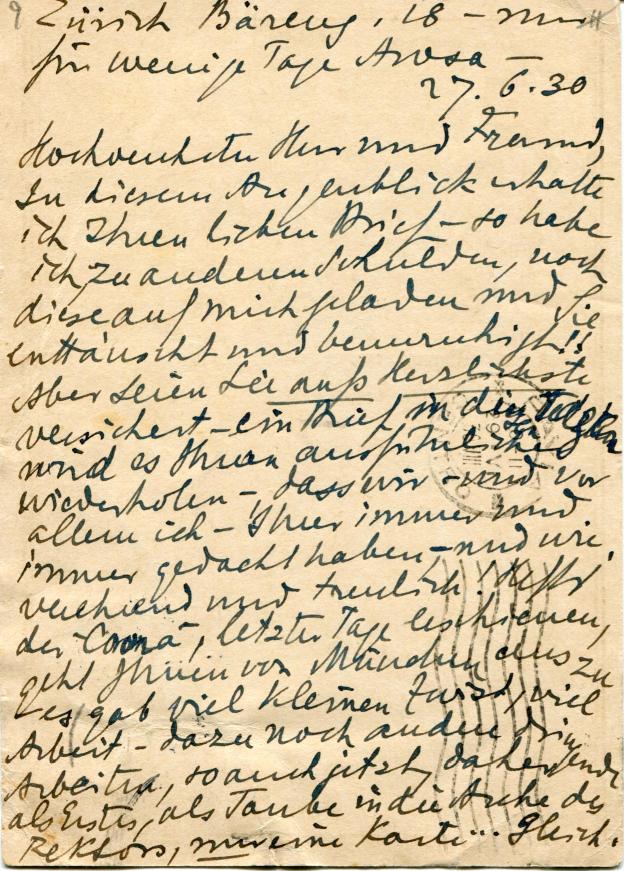 9
Zürich Bäreng. 18 – nur
für wenige Tage Arosa –
27. 6. 30
Hochverehrter Herr und Freund,
In diesem Augenblick erhalte
ich Ihren lieben Brief – so habe
ich zu anderen Schulden, noch
diese auf mich geladen und Sie
enttäuscht und beunruhigt!!
Aber seien Sie aufs Herzlichste
versichert – ein Brief in den Tagen
wird es Ihnen ausführlicher
wiederholen –, dass wir – und vor
allem ich – Ihrer immer und
immer gedacht haben – und wie
verehrend und treulich! Heft
der "Corona", letzter Tage erschienen,
geht Ihnen von München aus zu
– es gab viel kleinen Zwist, viel
Arbeit – dazu noch andere dringende
Arbeiten, so auch jetzt, daher
als Erstes, als Taube in die Arche des
Rektors, nur eine Karte... Gleich.